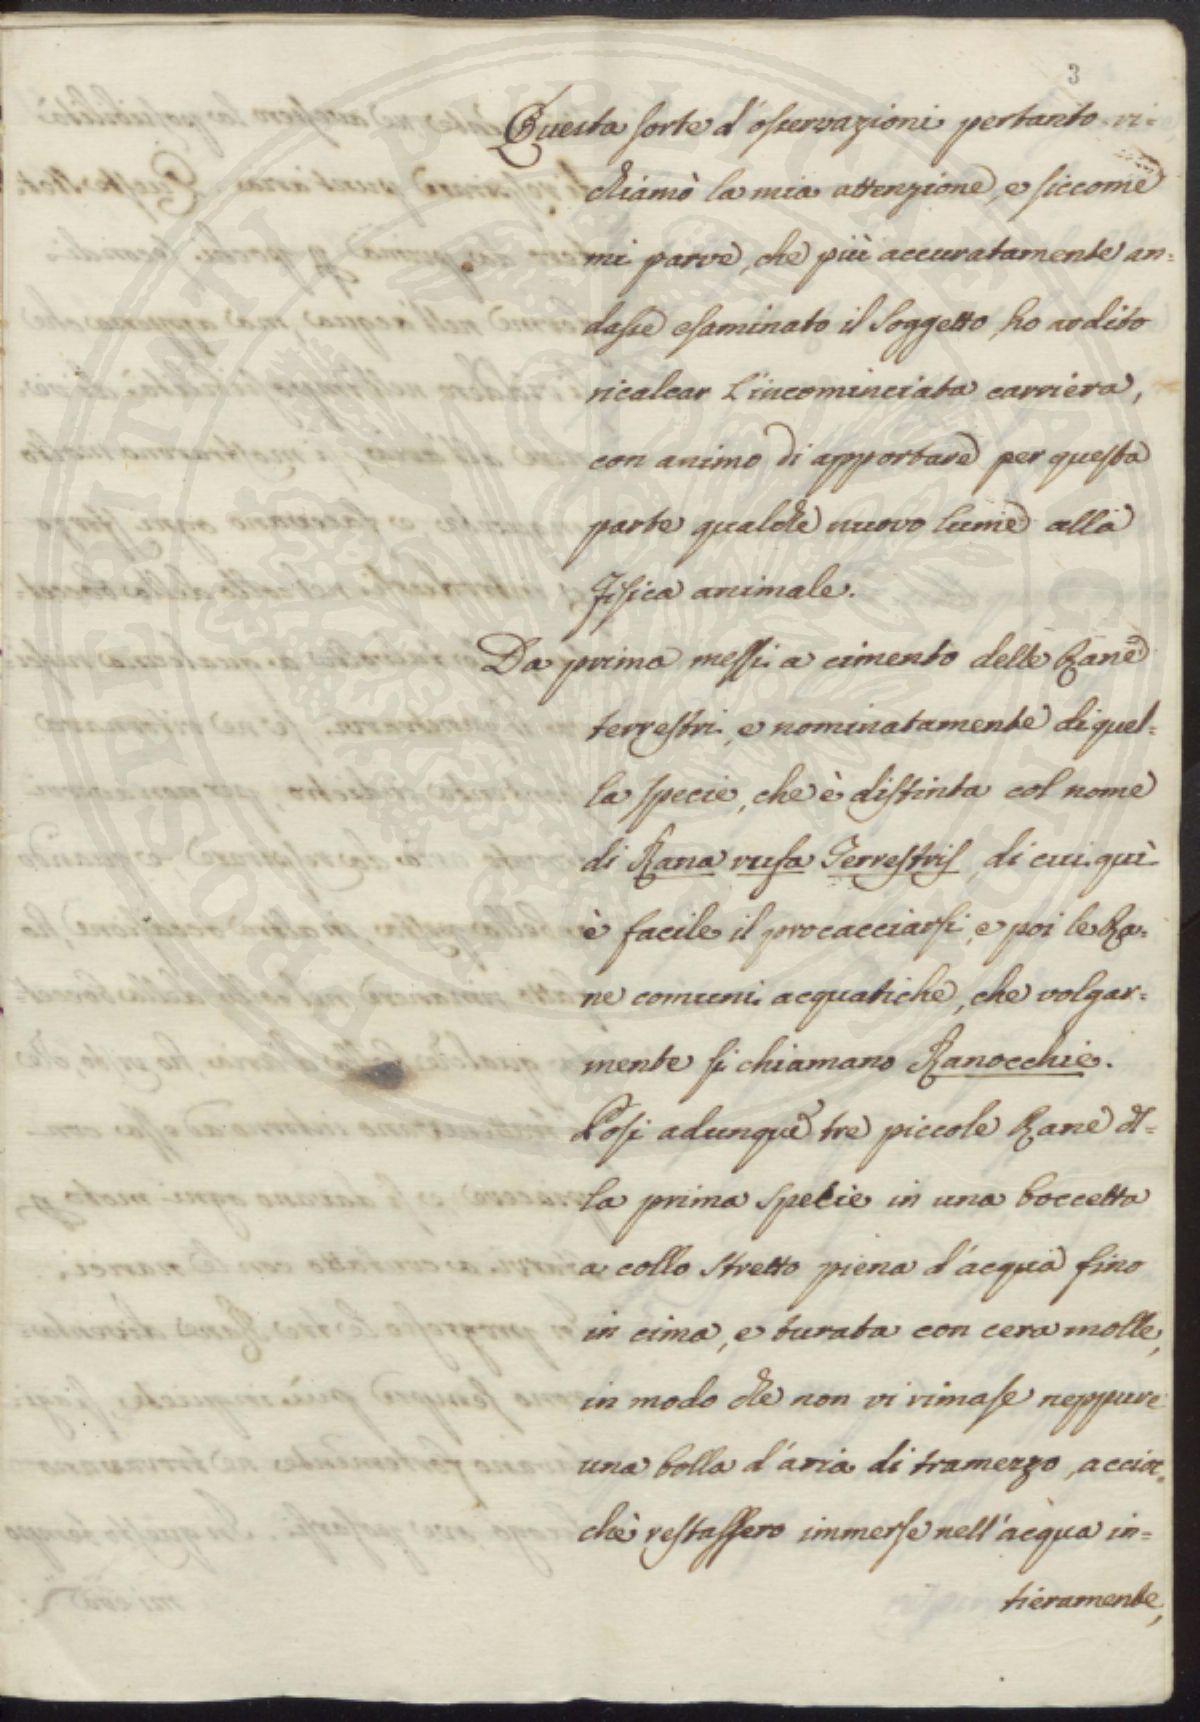 3
Questa sorte d'osservazioni pertanto ri=
chiamò la mia attenzione, e siccome
mi parve, che più accuratamente an=
dasse esaminato il soggetto, ho ardito
ricalcar l'incominciata carriera,
con animo di apportare per questa
parte qualche nuovo lume alla
Fisica animale.
Da prima messi a cimento delle Rane
terrestri, e nominatamente di quel=
la specie, che è distinta col nome
di Rana rufa Terrestris, di cui quì
è facile il procacciarsi, e poi le Ra=
ne comuni acquatiche, che volgar=
mente si chiamano Ranocchie.
Posi adunque tre piccole Rane del=
la prima specie in una boccetta
a collo stretto piena d'acqua fino
in cima, e turata con cera molle,
in modo che non vi rimase neppure
una bolla d'aria di tramezzo, accioc=
chè restassero immerse nell'acqua in=
tieramente,